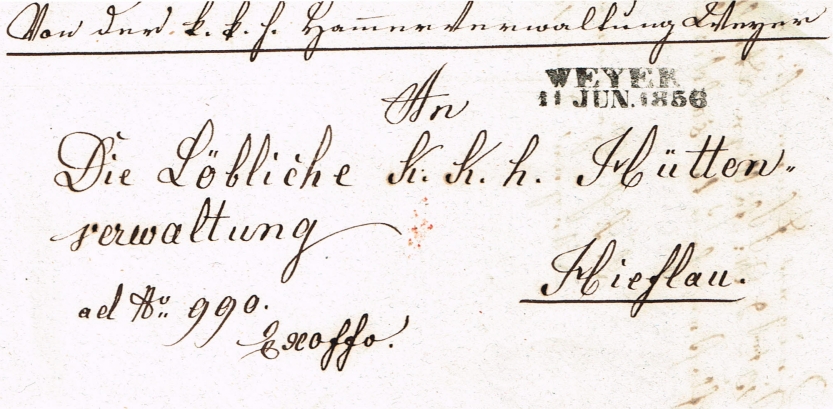 Von der k. k. h. Hammerverwaltung Weyer
WEYER
11 JUN. 1856
An
Die Löbliche K. K. h. Hütten-
verwaltung
Hieflau.
ad No. 990.
Exoffo.